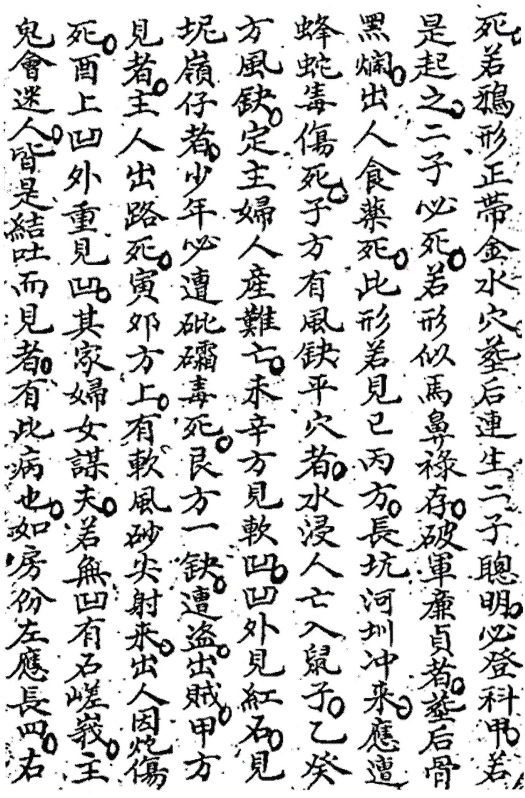 死。若鵝形正帶金水穴。塟后連生二子聰明。必登科甲。若
是起之。二子必死。若形似馬鼻祿存。破軍廉貞者。塟后骨
黑爛。出人食藥死。此形若見巳丙方。長坑河圳冲来。應遭
蜂蛇毒傷死。子方有風缺平穴者。水浸人亡入鼠子。乙癸
方風缺。定主婦人産難亡。未辛方見軟凹。凹外見紅石。見
坭嶺仔者。少年必遭砒礵毒死。艮方一缺。遭盗出賊。甲方
見者。主人出路死。寅夘方上。有軟風砂尖射来。出人因炮傷
死。酉上凹外重見凹。其家婦女謀夫。若無凹有石嵯峩。主
鬼會迷人。皆是結吐而見者。有此病也。如房份左應長四。右